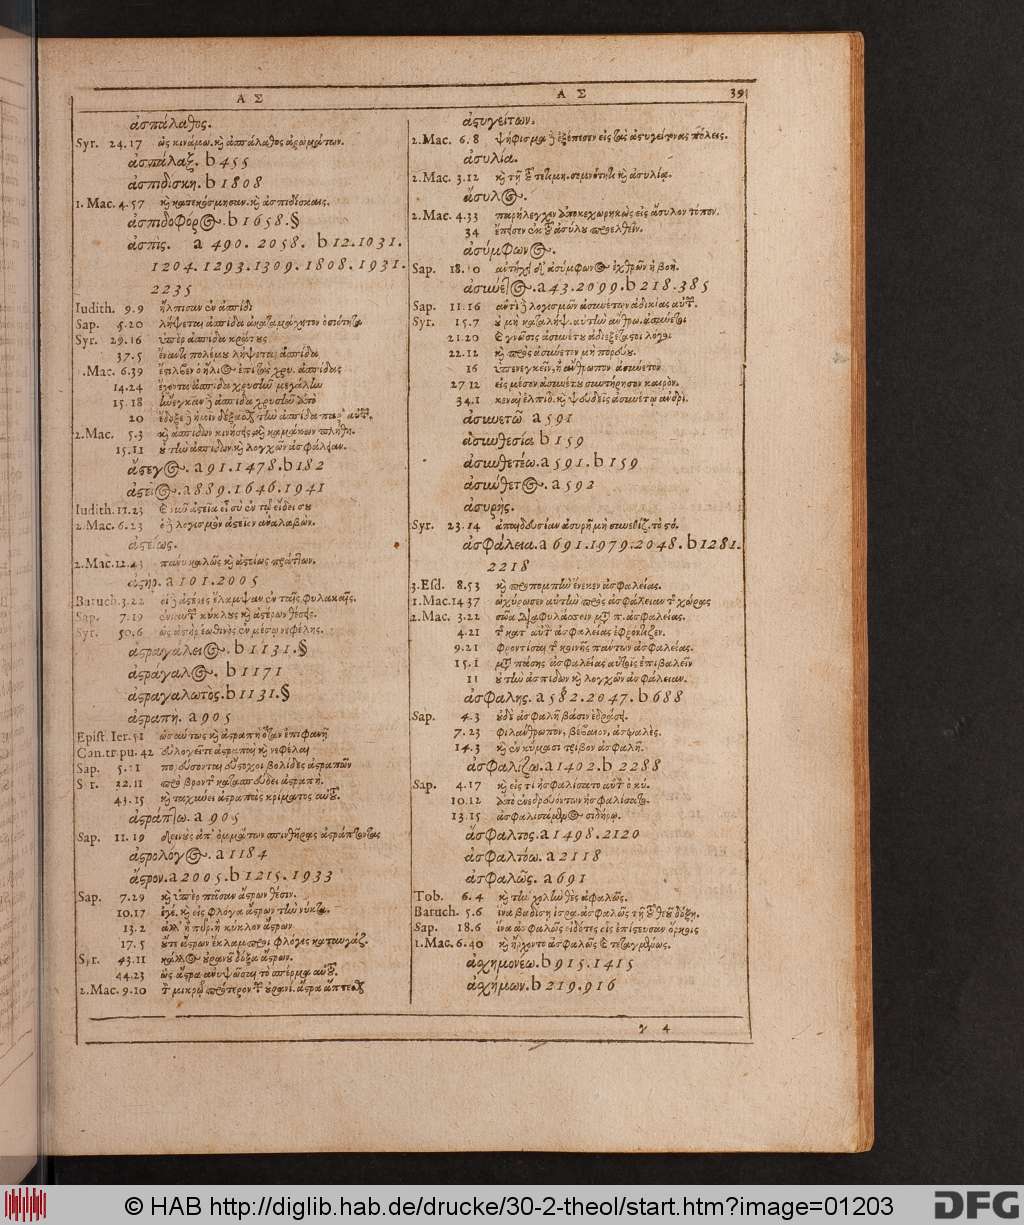 Α Σ
Α Σ 39
ἀσπάλαθος.
Syr. 24.17 ὡς κινάμω. κỳ ἀσπάλαθος ἀρωμάτων.
ἀσπάλαξ. b 455
ἀσπιδίσκη. b 1808
1. Mac. 4.57 κỳ κατεκόσμησαν. κỳ ἀσπιδίσκαις.
ἀσπιδοφόρος. b 1658.§
ἀσπίς. a 490. 2058. b 12.1031.
1204.1293.1309.1808.1931.
2235
Iudith. 9.9 ἤλπισαν ἐν ἀσπίδι
Sap. 5.20 λήψεται ἀσπίδα ἀκαταμάχητον ὁσιότητα
Syr. 29.16 ὑπὲρ ἀσπίδα κράτους
37.5 ἔναντι πολέμου λήψεται ἀσπίδα
.Mac. 6.39 ἔστιλβεν ὁ ἥλιος ἐπὶ τὰς χρυ. ἀσπίδας
14.24 ἔχοντα ἀσπίδα χρυσῆν μεγάλην
15.18 ἤνεγκαν ἀσπίδα χρυσῆν ἀπὸ
20 ἔδοξε ἡμῖν δέξασθαι τὴν ἀσπίδα παρ' αὐτῶν.
2. Mac. 5.3 κỳ ἀσπίδων κινήσεις κỳ καμάκων πλήθη.
15.11 οὐ τὴν ἀσπίδων κỳ λογχῶν ἀσφάλειαν.
ἄστεγος. a 91.1478. b 182
ἀστεῖος. a 889.1646.1941
Iudith. 11.23 ἀστεῖα εἶ σὺ ἐν τῷ εἴδει σου
2. Mac. 6.23 λογισμὸν ἀστεῖον ἀναλαβών.
ἀστείως.
2. Mac. 12.43 πάνυ καλῶς κỳ ἀστείως πράττων.
ἀστήρ. a 101.2005
Baruch. 3.22 οἱ ἀστέρες ἔλαμψαν ἐν ταῖς φυλακαῖς.
Sap. 7.19 ἐνιαυτοῦ κύκλους κỳ ἀστέρων θέσεις.
Syr. 50.6 ὡς ἀστὴρ ἑωθινὸς ἐν μέσῳ νεφέλης.
ἀστραγάλειος. b 1131.§
ἀστράγαλος. b 1171
ἀστραγαλωτὸς. b 1131.§
ἀστραπή. a 905
Epist. Ier. 51 ὡσαύτως κỳ ἀστραπὴ ὅταν ἐπιφανῇ
Can. tr. pu. 42 εὐλογεῖτε ἀστραπαὶ κỳ νεφέλαι
Sap. 5.21 πορεύσονται εὔστοχοι βολίδες ἀστραπῶν
Syr. 22.11 πρὸ βροντῆς κατασπεύδει ἀστραπή.
43.15 κỳ ταχύνει ἀστραπὰς κρίματος αὐτοῦ.
ἀστράπτω. a 905
Sap. 11.19 δεινοὺς ἀπ' ὀμμάτων σπινθῆρας ἀστράπτοντας
ἀστρολόγος. a 1184
ἄστρον. a 2005. b 1215.1933
Sap. 7.29 κỳ ὑπὲρ πᾶσαν ἄστρων θέσιν.
10.17 κỳ εἰς φλόγα ἄστρων τὴν νύκτα.
13.2 ἀλλ' ἢ πῦρ. ἢ κύκλον ἄστρων
17.5 οὔτε ἄστρων ἔκλαμπροι φλόγες καταυγάζ.
Syr. 43.11 κάλλος οὐρανοῦ δόξα ἄστρων.
44.23 ὡς ἄστρα ἀνυψῶσαι τὸ σπέρμα αὐτοῦ.
2. Mac. 9.10 μικρῷ πρότερον τῶν οὐρανί. ἄστρα ἅπτεσθαι
ἀστυγείτων.
2. Mac. 6.8 ψήφισμα ἐξέπεσεν εἰς τὰς ἀστυγείτονας πόλεις.
ἀσυλία.
2. Mac. 3.12 κỳ τῇ τετιμη. σεμνότητι κỳ ἀσυλίᾳ.
ἄσυλος.
2. Mac. 4.33 παρήλεγχεν ἀποκεχωρηκὼς εἰς ἄσυλον τόπον.
34 ἔπεισεν ἐκ τοῦ ἀσύλου προελθεῖν.
ἀσύμφωνος.
Sap. 18.10 ἀντήχει δ' ἀσύμφωνος ἐχθρῶν ἡ βοή.
ἀσύνετος. a 43.2099. b 218.385
Sap. 11.16 ἀντὶ λογισμῶν ἀσυνέτων ἀδικίας αὐτῶν.
Syr. 15.7 οὐ μὴ καταλήψ. αὐτὴν ἄνθρω. ἀσύνετοι
21.20 γνῶσις ἀσυνέτου ἀδιεξέταστοι λόγοι
22.12 κỳ πρὸς ἀσύνετον μὴ πορεύου.
16 ὑπενεγκεῖν, ἢ ἄνθρωπον ἀσύνετον
27.12 εἰς μέσον ἀσυνέτων συντήρησον καιρόν.
34.1 κεναὶ ἐλπίδ. κỳ ψευδεῖς ἀσυνέτῳ ἀνδρί.
ἀσυνετῶ a 591
ἀσυνθεσία b 159
ἀσυνθετέω. a 591. b 159
ἀσύνθετος. a 592
ἀσυρής.
Syr. 23.14 ἀπαιδευσίαν ἀσυρῆ μὴ συνεθίζ. τὸ στό.
ἀσφάλεια. a 691.1979.2048. b 1281.
2218
3. Esd. 8.53 κỳ προπομπὴν ἕνεκεν ἀσφαλείας.
1. Mac. 14.37 ὠχύρωσεν αὐτὴν πρὸς ἀσφάλειαν τῆς χώρας
2. Mac. 3.22 σῶα διαφυλάσσειν μετὰ π. ἀσφαλείας.
4.21 τῆς κατ' αὐτὸν ἀσφαλείας ἐφρόντιζεν.
9.21 φροντίσαι τῆς κοινῆς πάντων ἀσφαλείας.
15.1 μετὰ πάσης ἀσφαλείας αὐτοῖς ἐπιβαλεῖν
11 οὐ τὴν ἀσπίδων κỳ λογχῶν ἀσφάλειαν.
ἀσφαλής. a 582.2047. b 688
Sap. 4.3 οὐδὲ ἀσφαλῆ βάσιν ἑδράσει.
7.23 φιλάνθρωπον, βέβαιον, ἀσφαλὲς.
14.3 κỳ ἐν κύμασι τρίβον ἀσφαλῆ.
ἀσφαλίζω. a 1402. b 2288
Sap. 4.17 κỳ εἰς τί ἠσφαλίσατο αὐτὸν ὁ κύ.
10.12 ἀπὸ ἐνεδρευόντων ἠσφαλίσατο.
13.15 ἀσφαλισάμενος σιδήρῳ.
ἄσφαλτος. a 1498.2120
ἀσφαλτόω. a 2118
ἀσφαλῶς. a 691
Tob. 6.4 κỳ τὴν χολὴν θὲς ἀσφαλῶς.
Baruch. 5.6 ἵνα βαδίσῃ ἰσρα. ἀσφαλῶς τῇ τοῦ θεοῦ δόξῃ.
Sap. 18.6 ἵνα ἀσφαλῶς εἰδότες οἷς ἐπίστευσαν ὅρκοις
1. Mac. 6.40 κỳ ἤρχοντο ἀσφαλῶς τεταγμένως.
ἀσχημονέω. b 915.1415
ἀσχήμων. b 219.916
γ 4
© HAB http://diglib.hab.de/drucke/30-2-theol/start.htm?image=01203
DFG